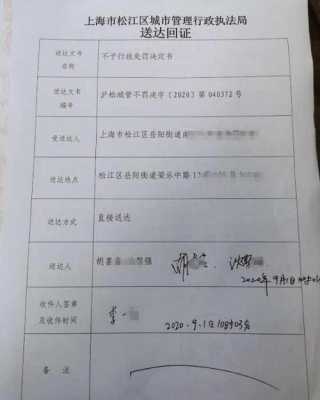 上海市松江区城市管理行政执法局
送达回证
送达文书
名称
不予行政处罚决定书
送达文书
编号
沪松城管不罚决字〔2020〕第040372号
受送达人
上海市松江区岳阳街道
送达地点
松江区岳阳街道荣乐中路1
送达方式
直接送达
送达人
胡 强
2020年9月1日
收件人签章
及收件时间
李
2020.9.1日10时03分
备 注